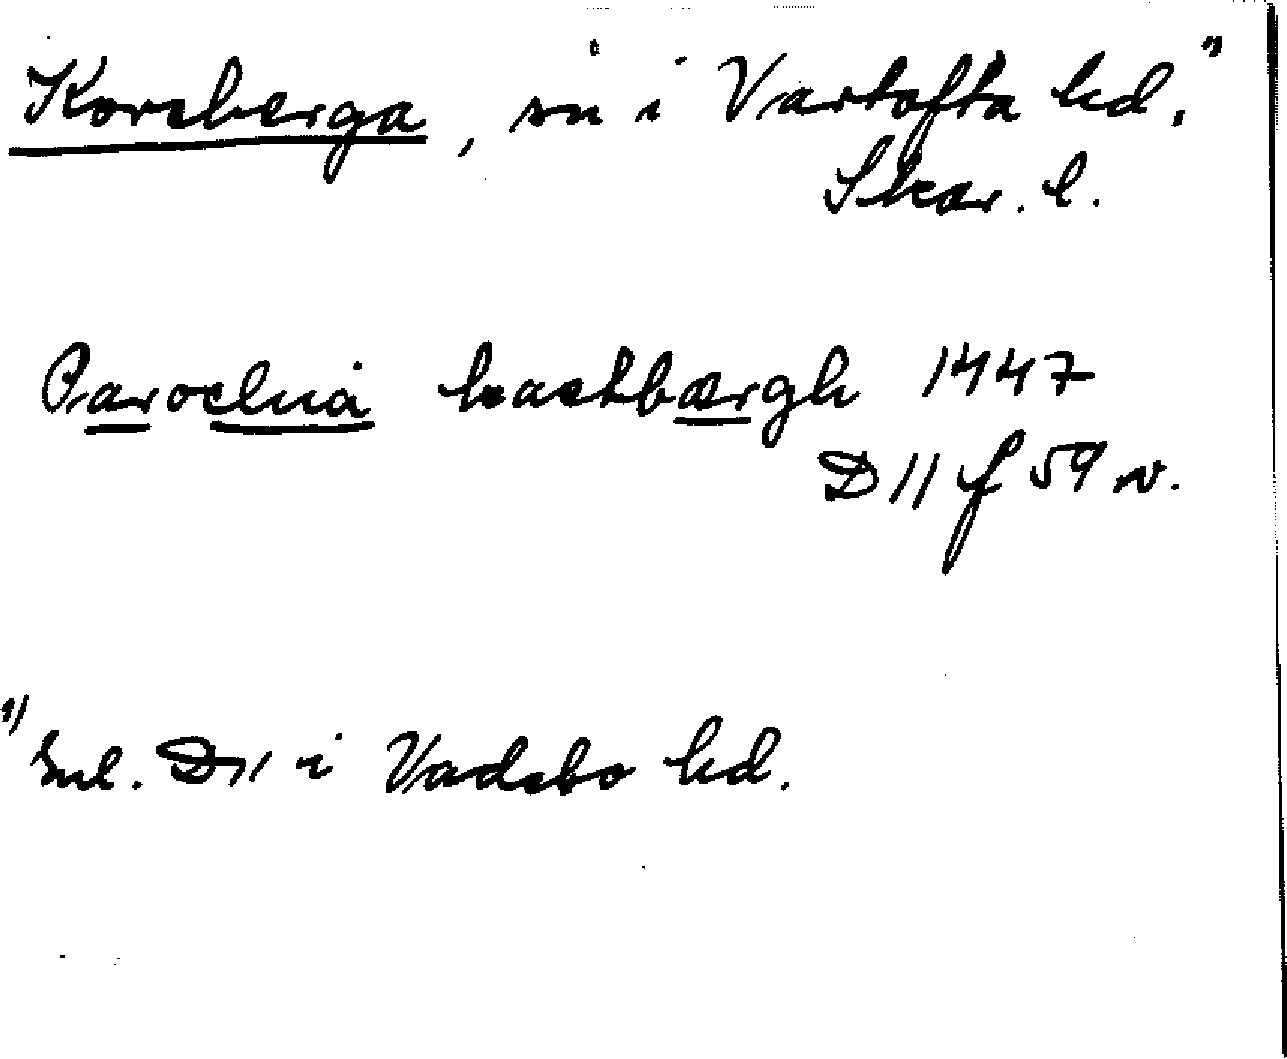 Korsberga, sn i Vartofta hd. 1)
Skar. l.
Parochia kastbærgh 1447
D 11 f 59 v.
1) Enl. D11 i Vadsbo hd.